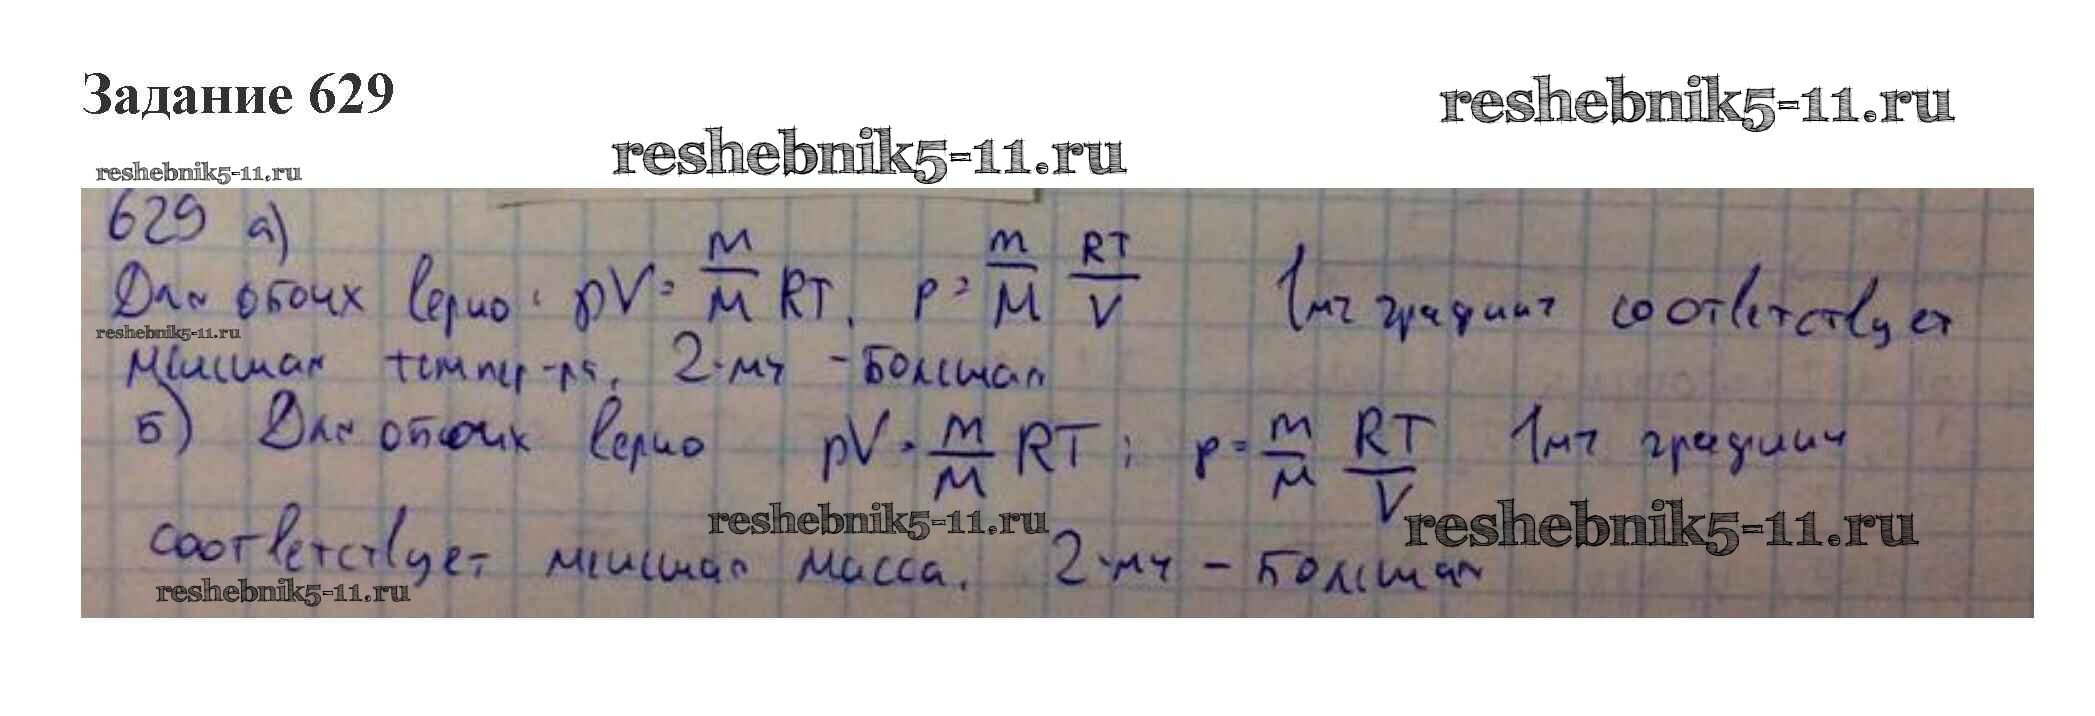 Задание 629
reshebnik5-11.ru
reshebnik5-11.ru
reshebnik5-11.ru
629 а)
Для обоих верно: pV = m/M RT, p = m/M RT/V 1му графику соответствует
reshebnik5-11.ru
меньшая темпер-ра, 2-му - большая
б) Для обоих верно pV = m/M RT; p = m/M RT/V 1му графику
reshebnik5-11.ru
reshebnik5-11.ru
соответствует меньшая масса. 2-му - большая
reshebnik5-11.ru